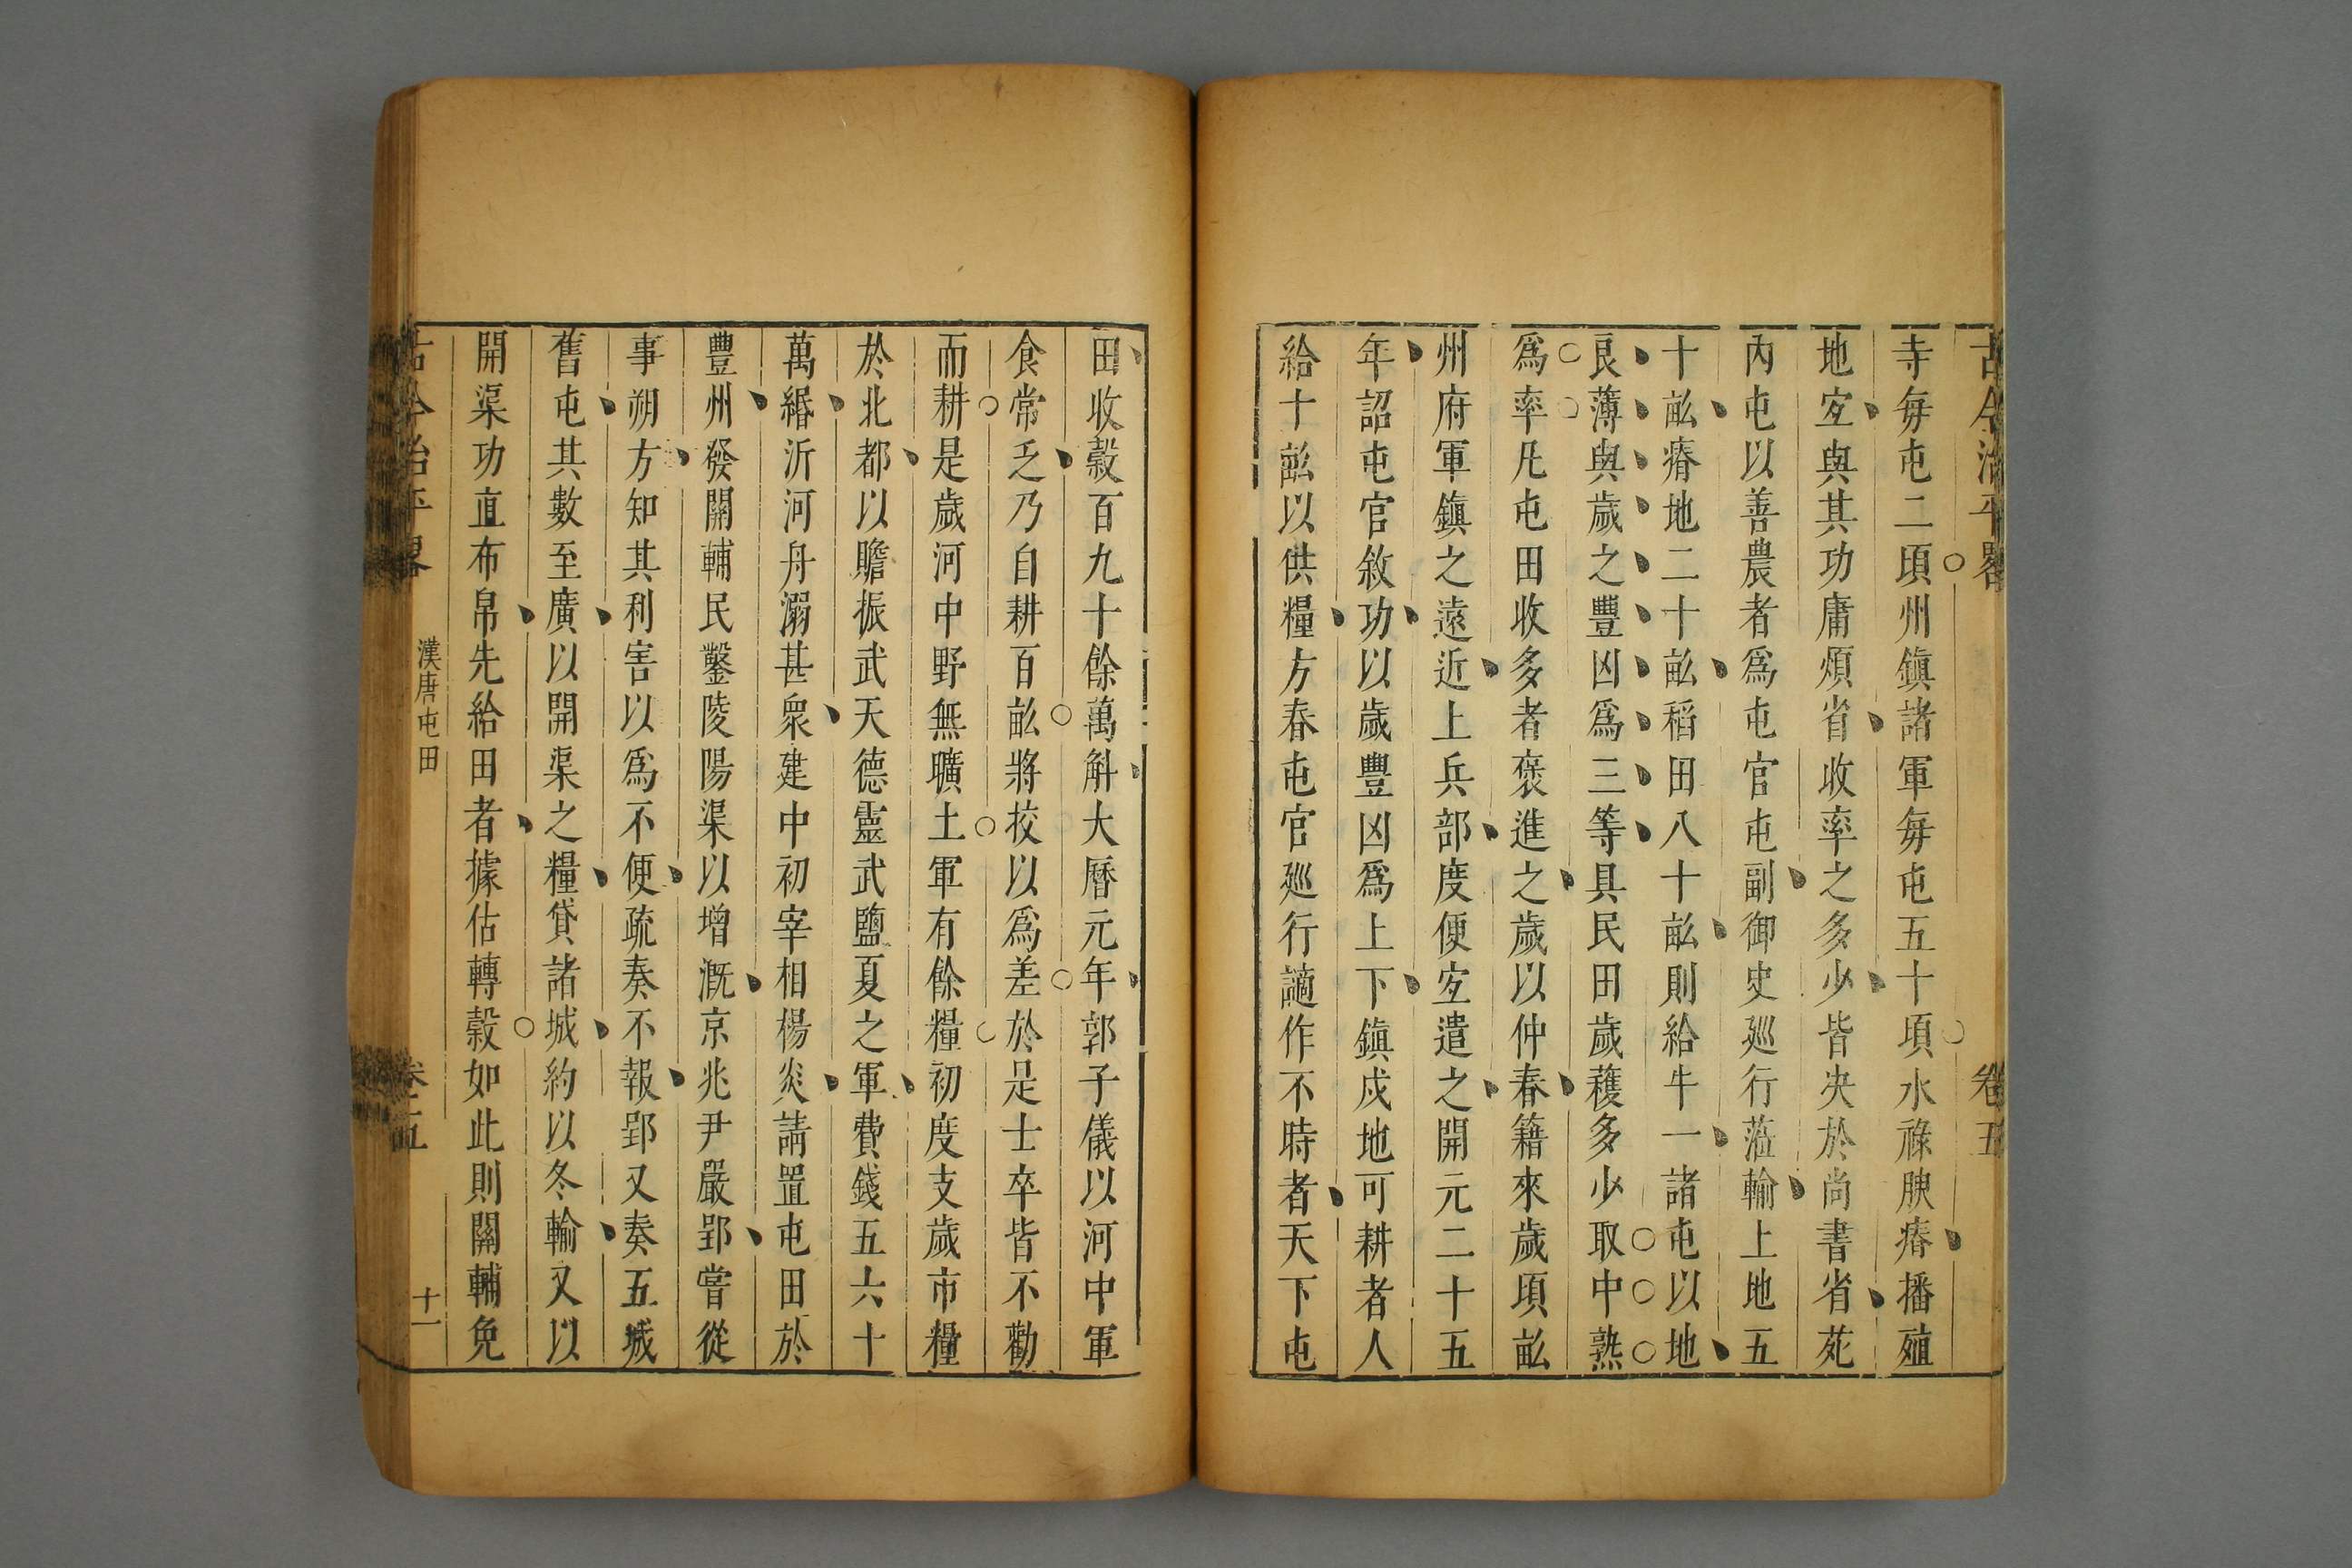 古今治平畧
卷五
寺每屯二頃州鎮諸軍每屯五十頃水祿腴瘠播殖
地宐與其功庸煩省收率之多少皆决於尚書省苑
內屯以善農者爲屯官屯副御史廵行蒞輸上地五
十畆瘠地二十畆稻田八十畆則給牛一諸屯以地
良薄與歲之豐凶爲三等具民田歲穫多少取中熟
爲率凡屯田收多者褒進之歲以仲春籍來歲頃畆
州府軍鎭之遠近上兵部度便宐遣之開元二十五
年詔屯官敘功以歲豐凶爲上下鎮戍地可耕者人
給十畆以供糧方春屯官廵行謫作不時者天下屯
田收穀百九十餘萬斛大曆元年郭子儀以河中軍
食常乏乃自耕百畆將挍以爲差於是士卒皆不勸
而耕是歲河中野無曠土軍有餘糧初度支歲市糧
於北都以贍振武天德靈武鹽夏之軍費錢五六十
萬緡泝河舟溺甚衆建中初宰相楊炎請置屯田於
豐州發關輔民鑿陵陽渠以增漑京兆尹嚴郢嘗從
事朔方知其利害以爲不便疏奏不報郢又奏五城
舊屯其數至廣以開渠之糧貸諸城約以冬輸又以
開渠功直布帛先給田者據估轉穀如此則關輔免
古今治平畧
漢唐屯田
卷五
十一